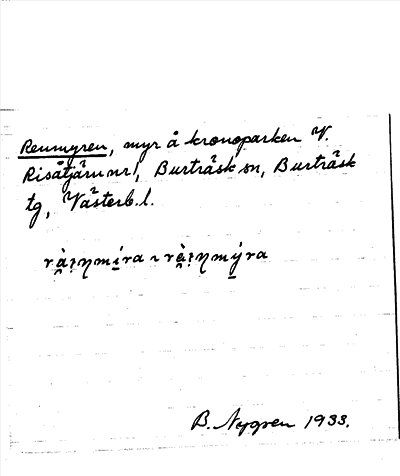 Renmyren, myr å kronoparken V.
Risåtjärn nr 1, Burträsk sn, Burträsk
tg, Västerb. l.
B. Nygren 1933.